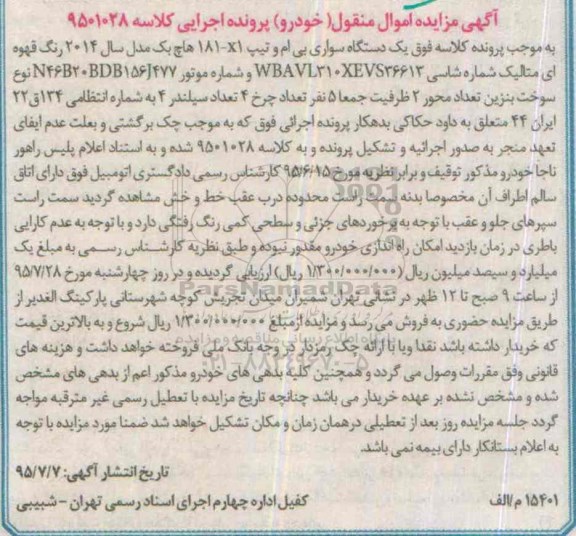 آگهی مزایده اموال منقول( خودرو) پرونده اجرایی کلاسه ۹۵۰۱۰۲۸
به موجب پرونده کلاسه فوق یک دستگاه سواری بی ام و تیپ x۱-۱۸i هاچ بک مدل سال ۲۰۱۴ رنگ قهوه
ای متالیک شماره شاسی WBAVL۳۱۰XEVS۳۶۶۱۳ و شماره موتور N۴۶B۲۰BDB۱۵۶J۴۷۷ نوع
سوخت بنزین تعداد محور ۲ ظرفیت جمعا ۵ نفر تعداد چرخ ۴ تعداد سیلندر ۴ به شماره انتظامی ۱۳۴ق۲۲
ایران ۴۴ متعلق به داود حکاکی بدهکار پرونده اجرائی فوق که به موجب چک برگشتی و بعلت عدم ایفای
تعهد منجر به صدور اجرائیه و تشکیل پرونده و به کلاسه ۹۵۰۱۰۲۸ شده و به استناد اعلام پلیس راهور
ناجا خودرو مذکور توقیف و برابر نظریه مورخ ۹۵/۶/۱۵ کارشناس رسمی دادگستری اتومبیل فوق دارای اتاق
سالم اطراف آن مخصوصا بدنه سمت راست محدوده درب عقب خط و خش مشاهده گردید سمت راست
سپرهای جلو و عقب با توجه به برخوردهای جزئی و سطحی کمی رنگ رفتگی دارد و با توجه به عدم کارایی
باطری در زمان بازدید امکان راه اندازی خودرو مقدور نبوده و طبق نظریه کارشناس رسمی به مبلغ یک
میلیارد و سیصد میلیون ریال (۱/۳۰۰/۰۰۰/۰۰۰ ریال) ارزیابی گردیده و در روز چهارشنبه مورخ ۹۵/۷/۲۸
از ساعت ۹ صبح تا ۱۲ ظهر در نشانی تهران شمیران میدان تجریش کوچه شهرستانی پارکینگ الغدیر از
طریق مزایده حضوری به فروش می رسد و مزایده از مبلغ ۱/۳۰۰/۰۰۰/۰۰۰ ریال شروع و به بالاترین قیمت
که خریدار داشته باشد نقدا ویا با ارائه چک رمزدار در وجه بانک ملی فروخته خواهد داشت و هزینه های
قانونی وفق مقررات وصول می گردد و همچنین کلیه بدهی های خودرو مذکور اعم از بدهی های مشخص
شده و مشخص نشده بر عهده خریدار می باشد چنانچه تاریخ مزایده با تعطیل رسمی غیر مترقبه مواجه
گردد جلسه مزایده روز بعد از تعطیلی درهمان زمان و مکان تشکیل خواهد شد ضمنا مورد مزایده با توجه
به اعلام بستانکار دارای بیمه نمی باشد.
تاریخ انتشار آگهی: ۹۵/۷/۷
۱۵۴۰۱ م/الف
کفیل اداره چهارم اجرای اسناد رسمی تهران - شبیبی
ParsNamadData